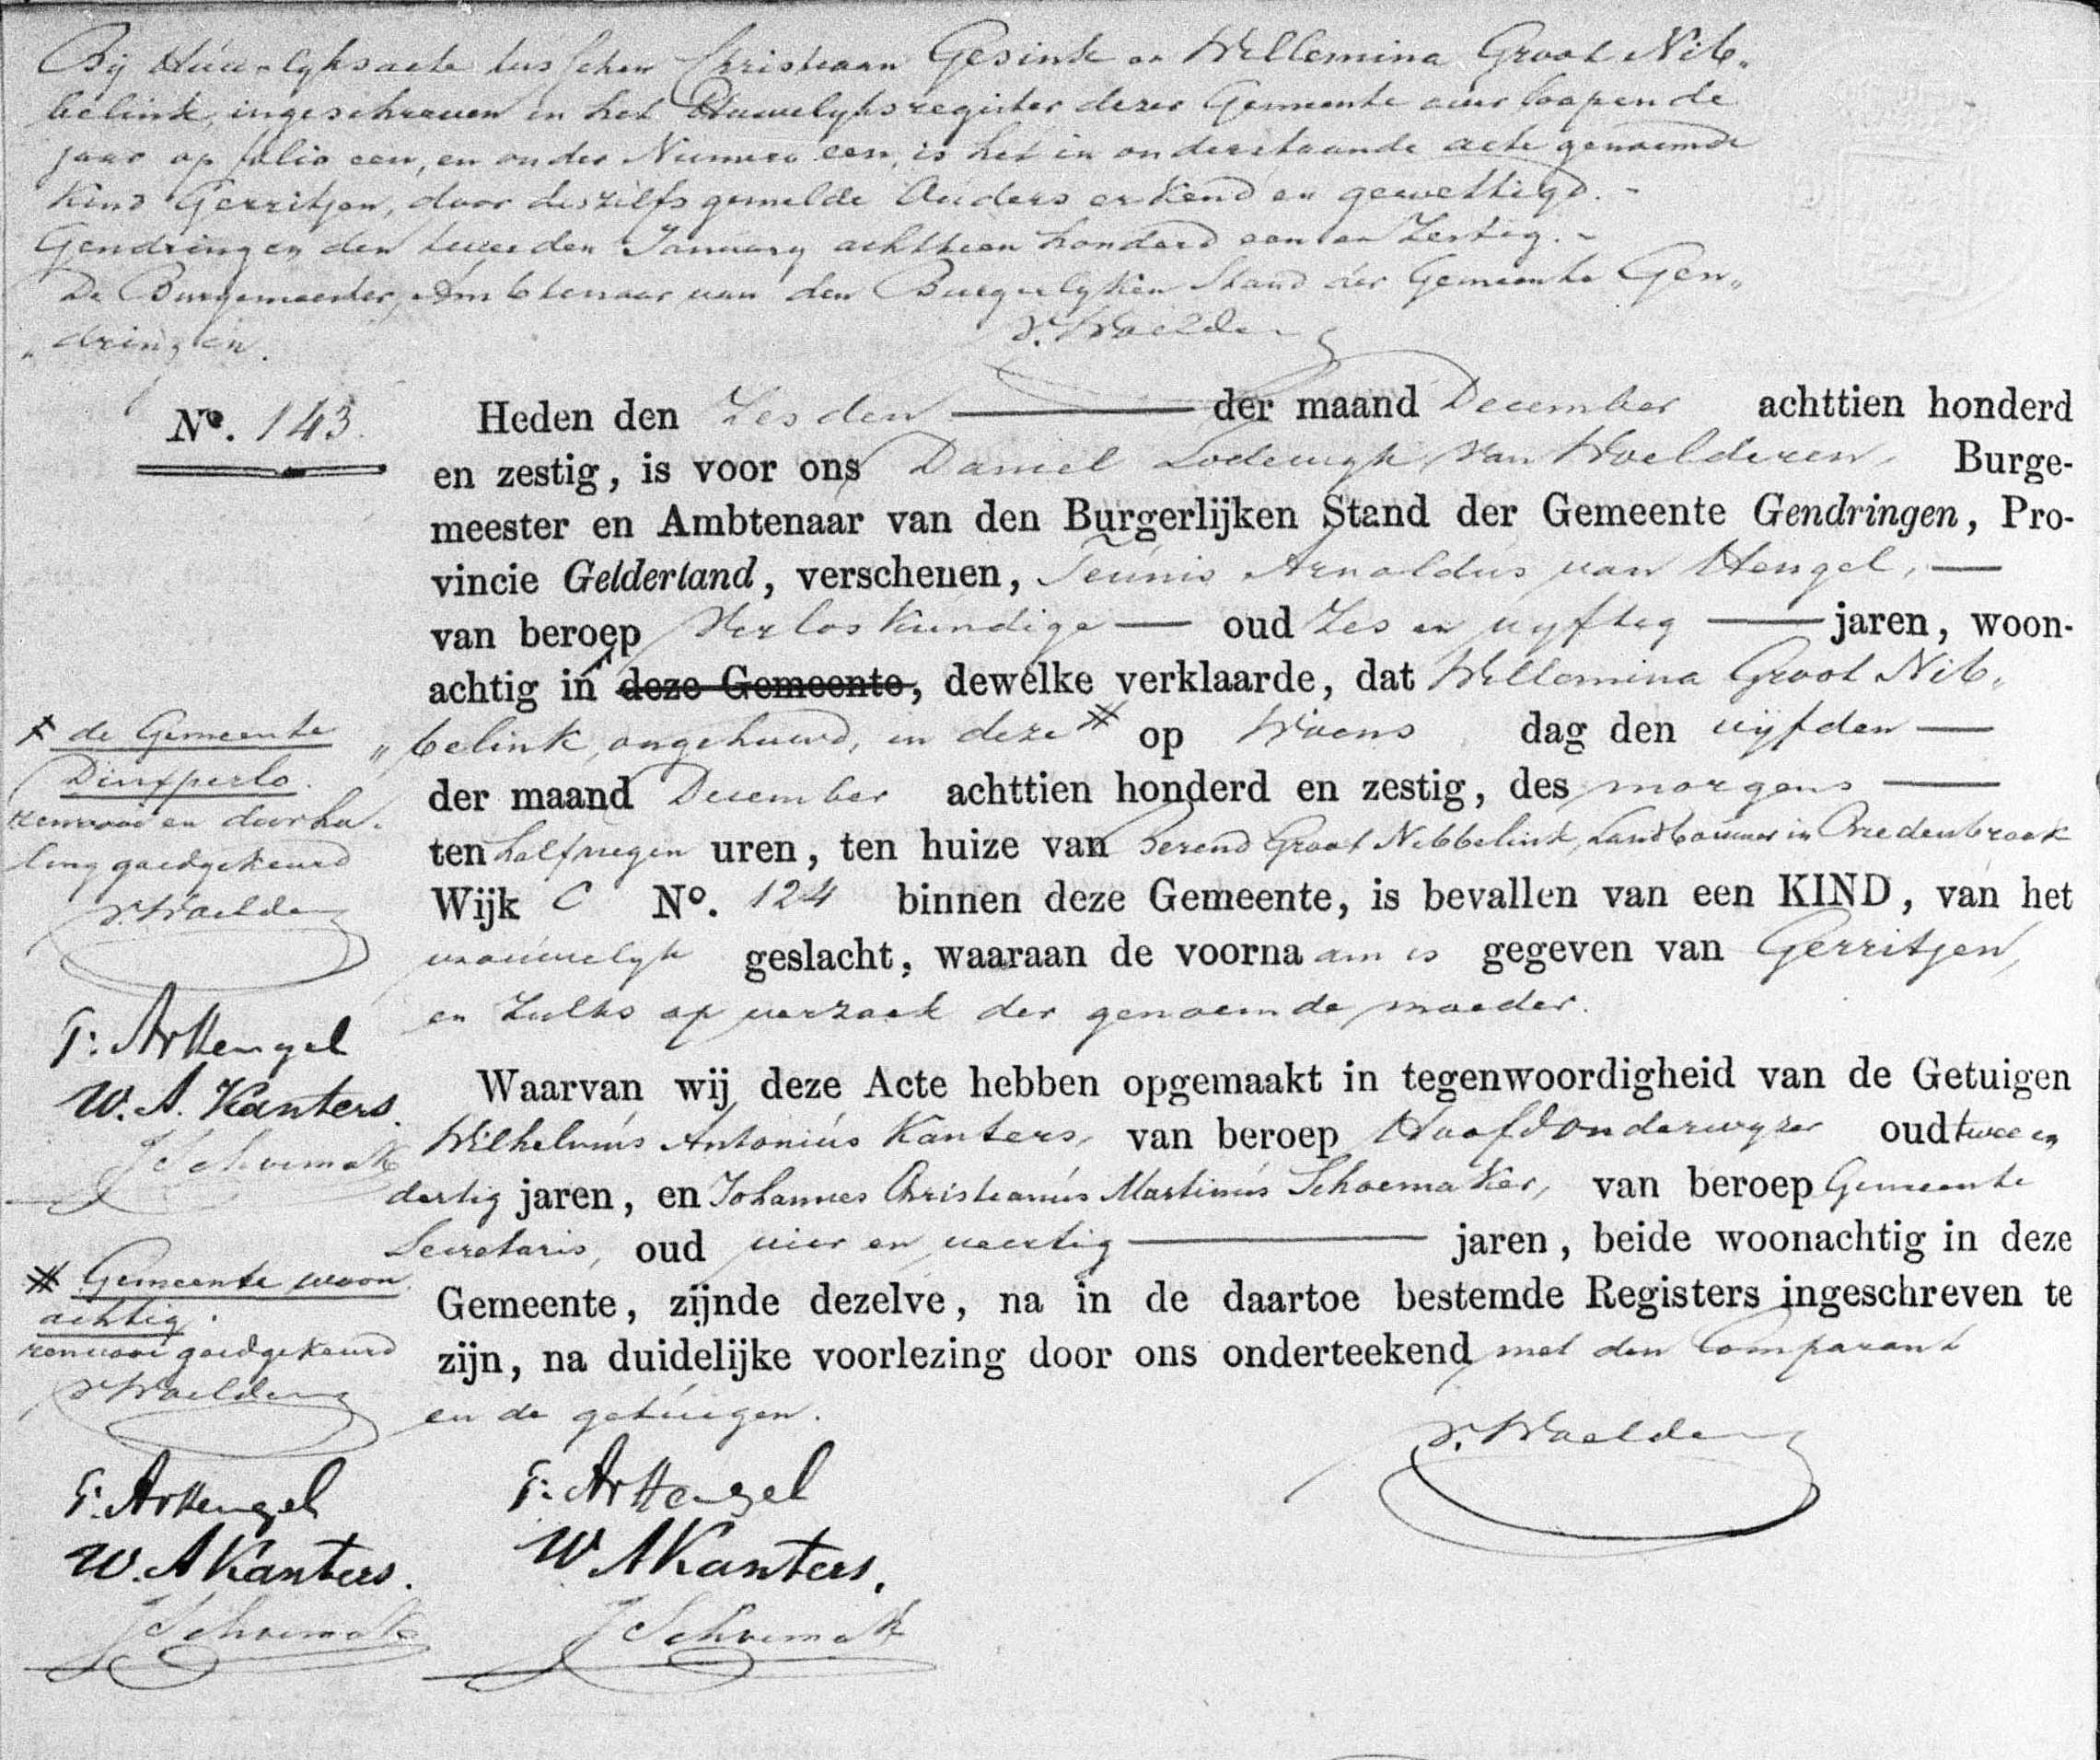 Bij Huwelyksacte tusschen Christiaan Gesink en Willemina Groot Nib„
belink, ingeschreven in het Huwelyksregister dezer Gemeente over loopende
jaar op folio een, en onder Nummer een, is het in onderstaande acte genoemde
Kind Gerritjen, door deszelfs gemelde Ouders erkend en gewettigd. -
Gendringen den tweeden January achttien honderd een en Zestig. -
De Burgemeester, Ambtenaar van den Burgerlyken Stand der Gemeente Gen„
„dringen.
v. Woelderen
No. 143. Heden den Zesden der maand December achttien honderd
en zestig, is voor ons Daniel Lodewyk van Woelderen, Burge-
meester en Ambtenaar van den Burgerlijken Stand der Gemeente Gendringen, Pro-
vincie Gelderland, verschenen, Teúnis Arnoldús van Hengel,
van beroep Verloskundige oud Zes en vyftig jaren, woon-
achtig in deze Gemeente, dewelke verklaarde, dat Willemina Groot Nib„
„belink, ongehuwd, in deze # op Woens dag den vyfden
der maand December achttien honderd en zestig, des morgens
ten half negen uren, ten huize van Berend Groot Nibbelink, Landbouwer in Bredenbroek
Wijk C No. 124 binnen deze Gemeente, is bevallen van een KIND, van het
vrouwelyk geslacht, waaraan de voornaam is gegeven van Gerritjen,
en Zulks op verzoek der genoemde moeder.
Waarvan wij deze Acte hebben opgemaakt in tegenwoordigheid van de Getuigen
Wilhelmús Antoniús Kanters, van beroep Hoofdonderwyzer oud twee en
dertig jaren, en Johannes Christianús Martinús Schoemaker, van beroep Gemeente
Secretaris, oud vier en veertig jaren, beide woonachtig in deze
Gemeente, zijnde dezelve, na in de daartoe bestemde Registers ingeschreven te
zijn, na duidelijke voorlezing door ons onderteekend met den Comparant
en de getuigen.
v. Woelderen
T. A v Hengel
W A Kanters.
J Schoemaker
de Gemeente
Dinxperlo.
renvooi en doorha„
ling goedgekeurd
v. Woelderen
T. A v Hengel
W. A. Kanters.
J Schoemaker
# Gemeente woon
achtig.
renvooi goedgekeurd
v Woelderen
T. A v Hengel
W. A Kanters.
J Schoemaker